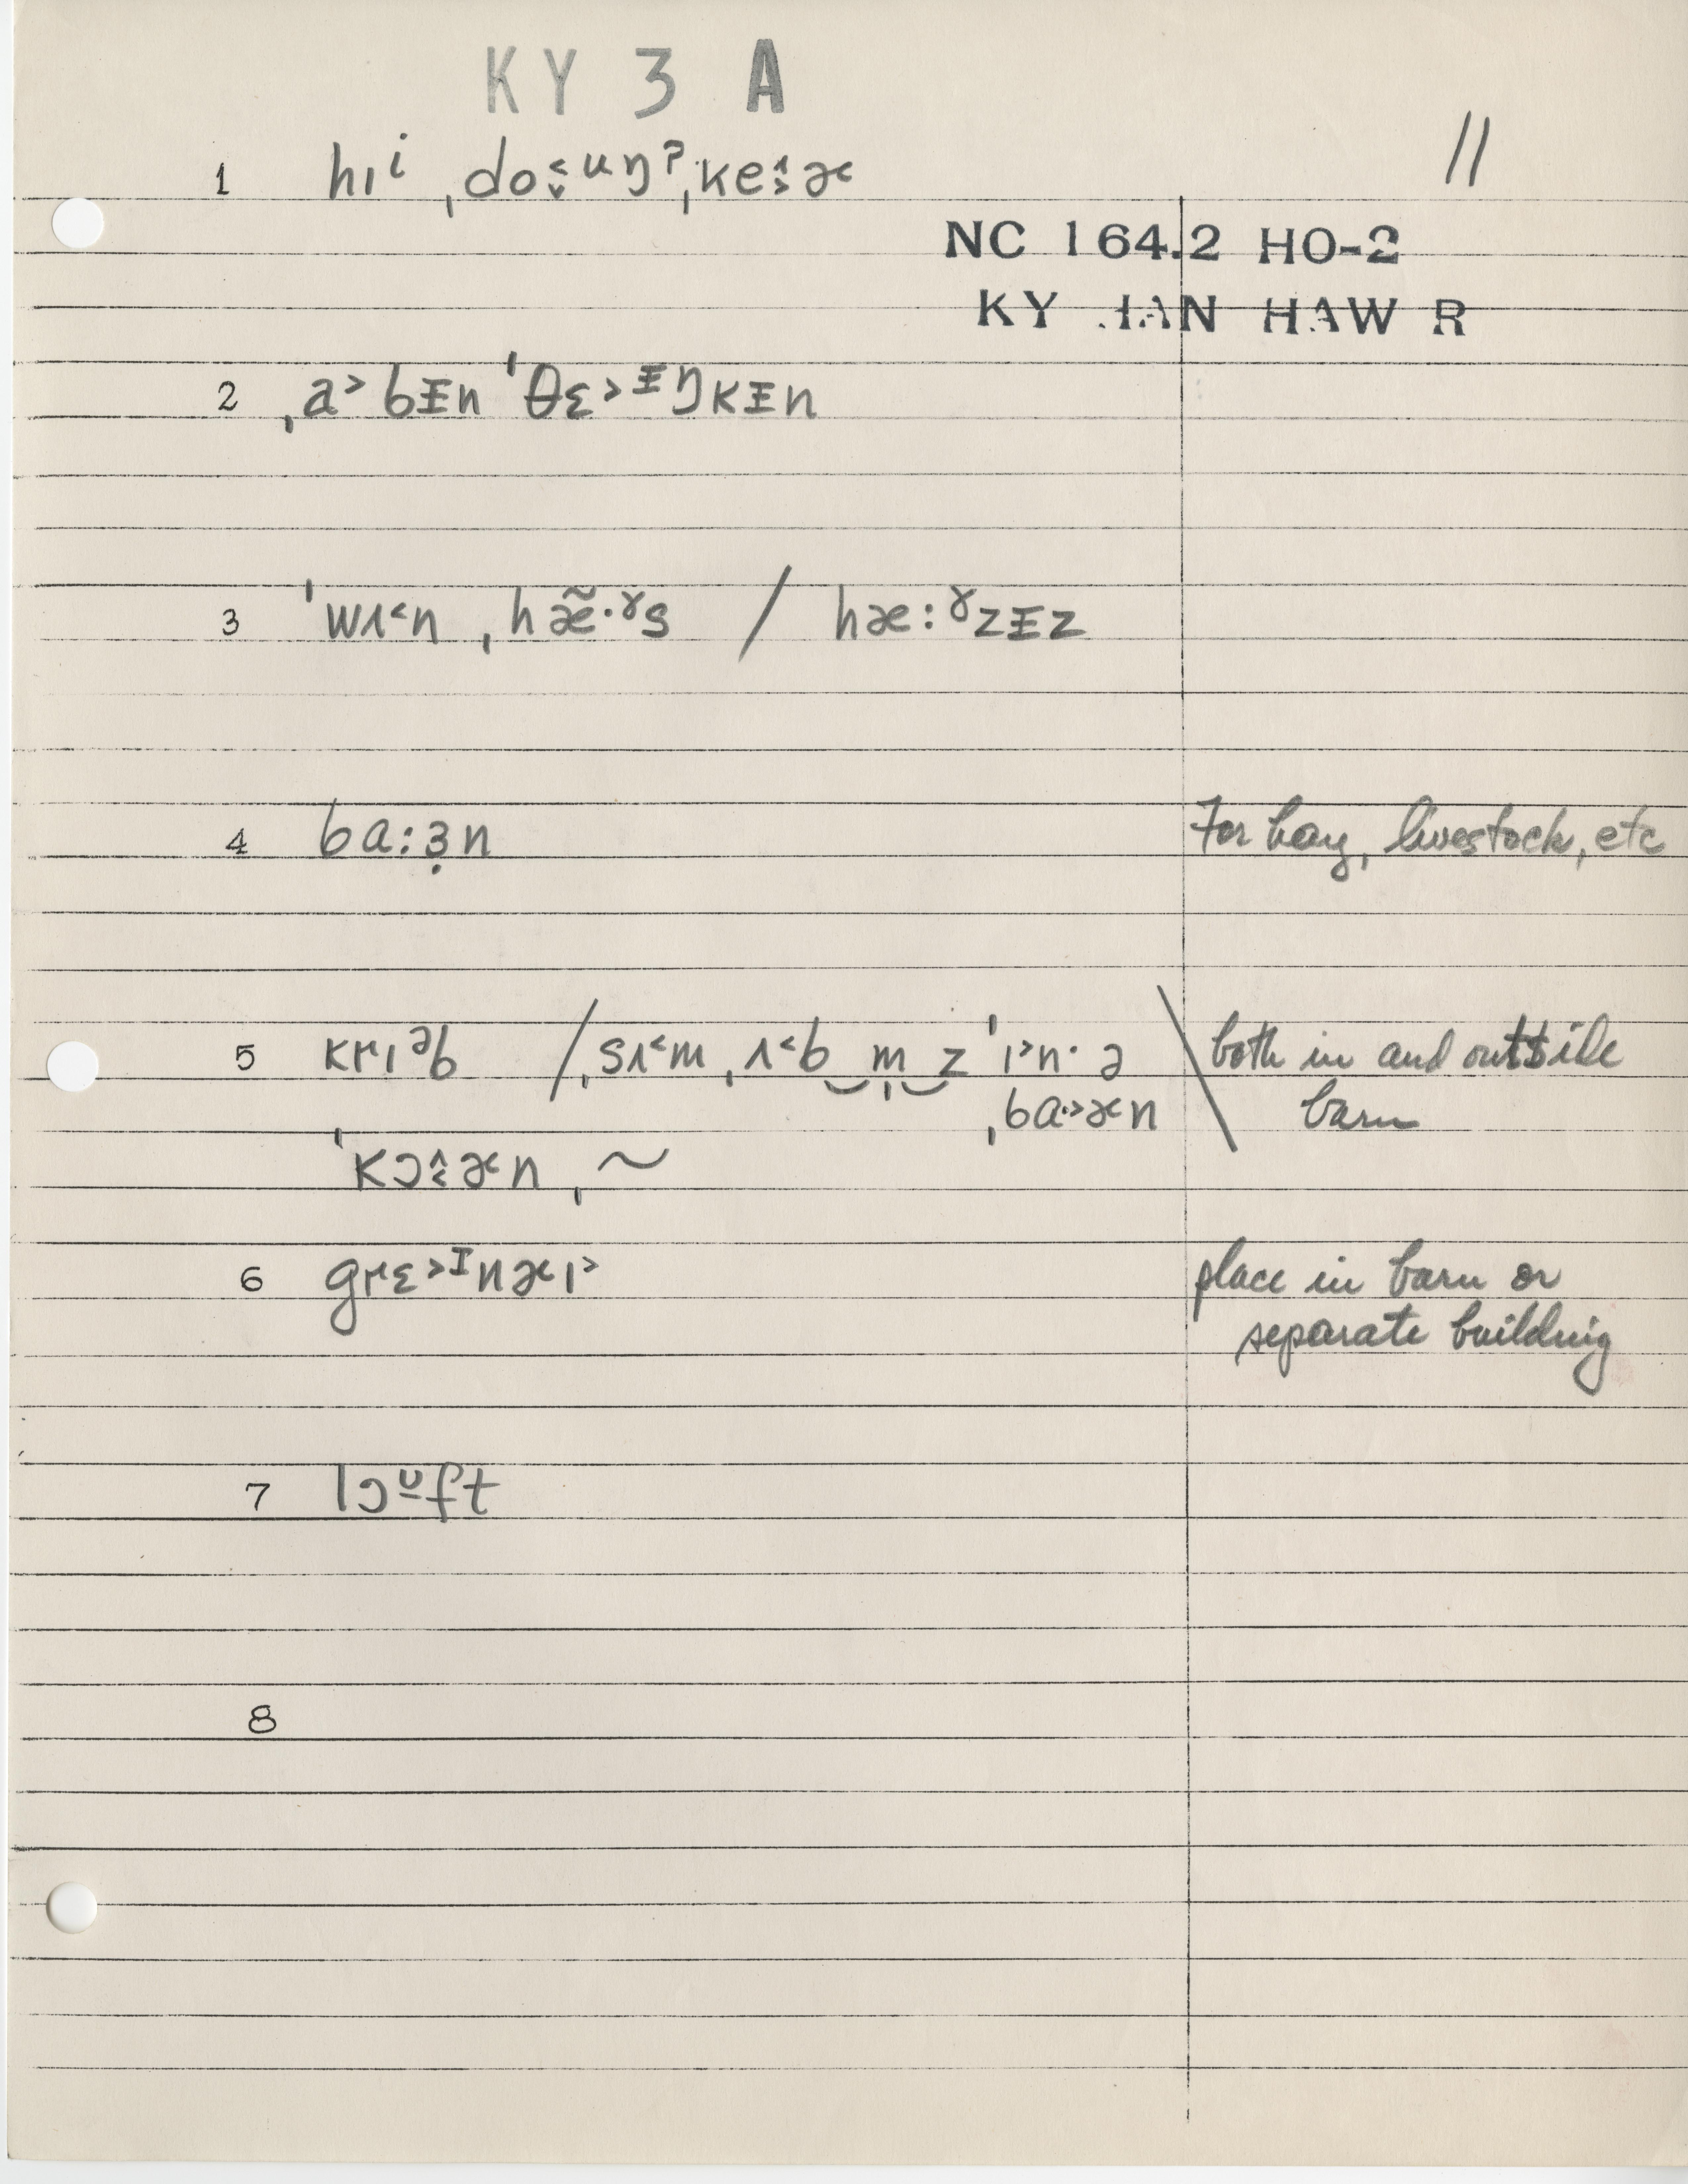 KY 3 A
11
1 hɪⁱ ˌdo˂̬ᵘŋˀˌke˔˃ɚ
NC 164.2 HO-2
KY JAN HAW R
2 ˌa˃bᵻn ˈθɛ˃ᵻŋkᵻn
3 ˈwɪ˂n ˌhæ̃·ˠs / hæ:ˠzᵻz
4 ba:ɜ̣n For hay, livestock, etc
5 krɪᵊb /ˌsʌ˂m ˌʌ˂b‿m̩‿z ˈɪ˃n· ə \ both in and outside
ˌba·˃ɚn barn
ˈkɔ˄˂ɚn ˌ~
6 grɛ˃ᴵnɚɪ˃ place in barn or
separate building
7 lɔᶷft
8